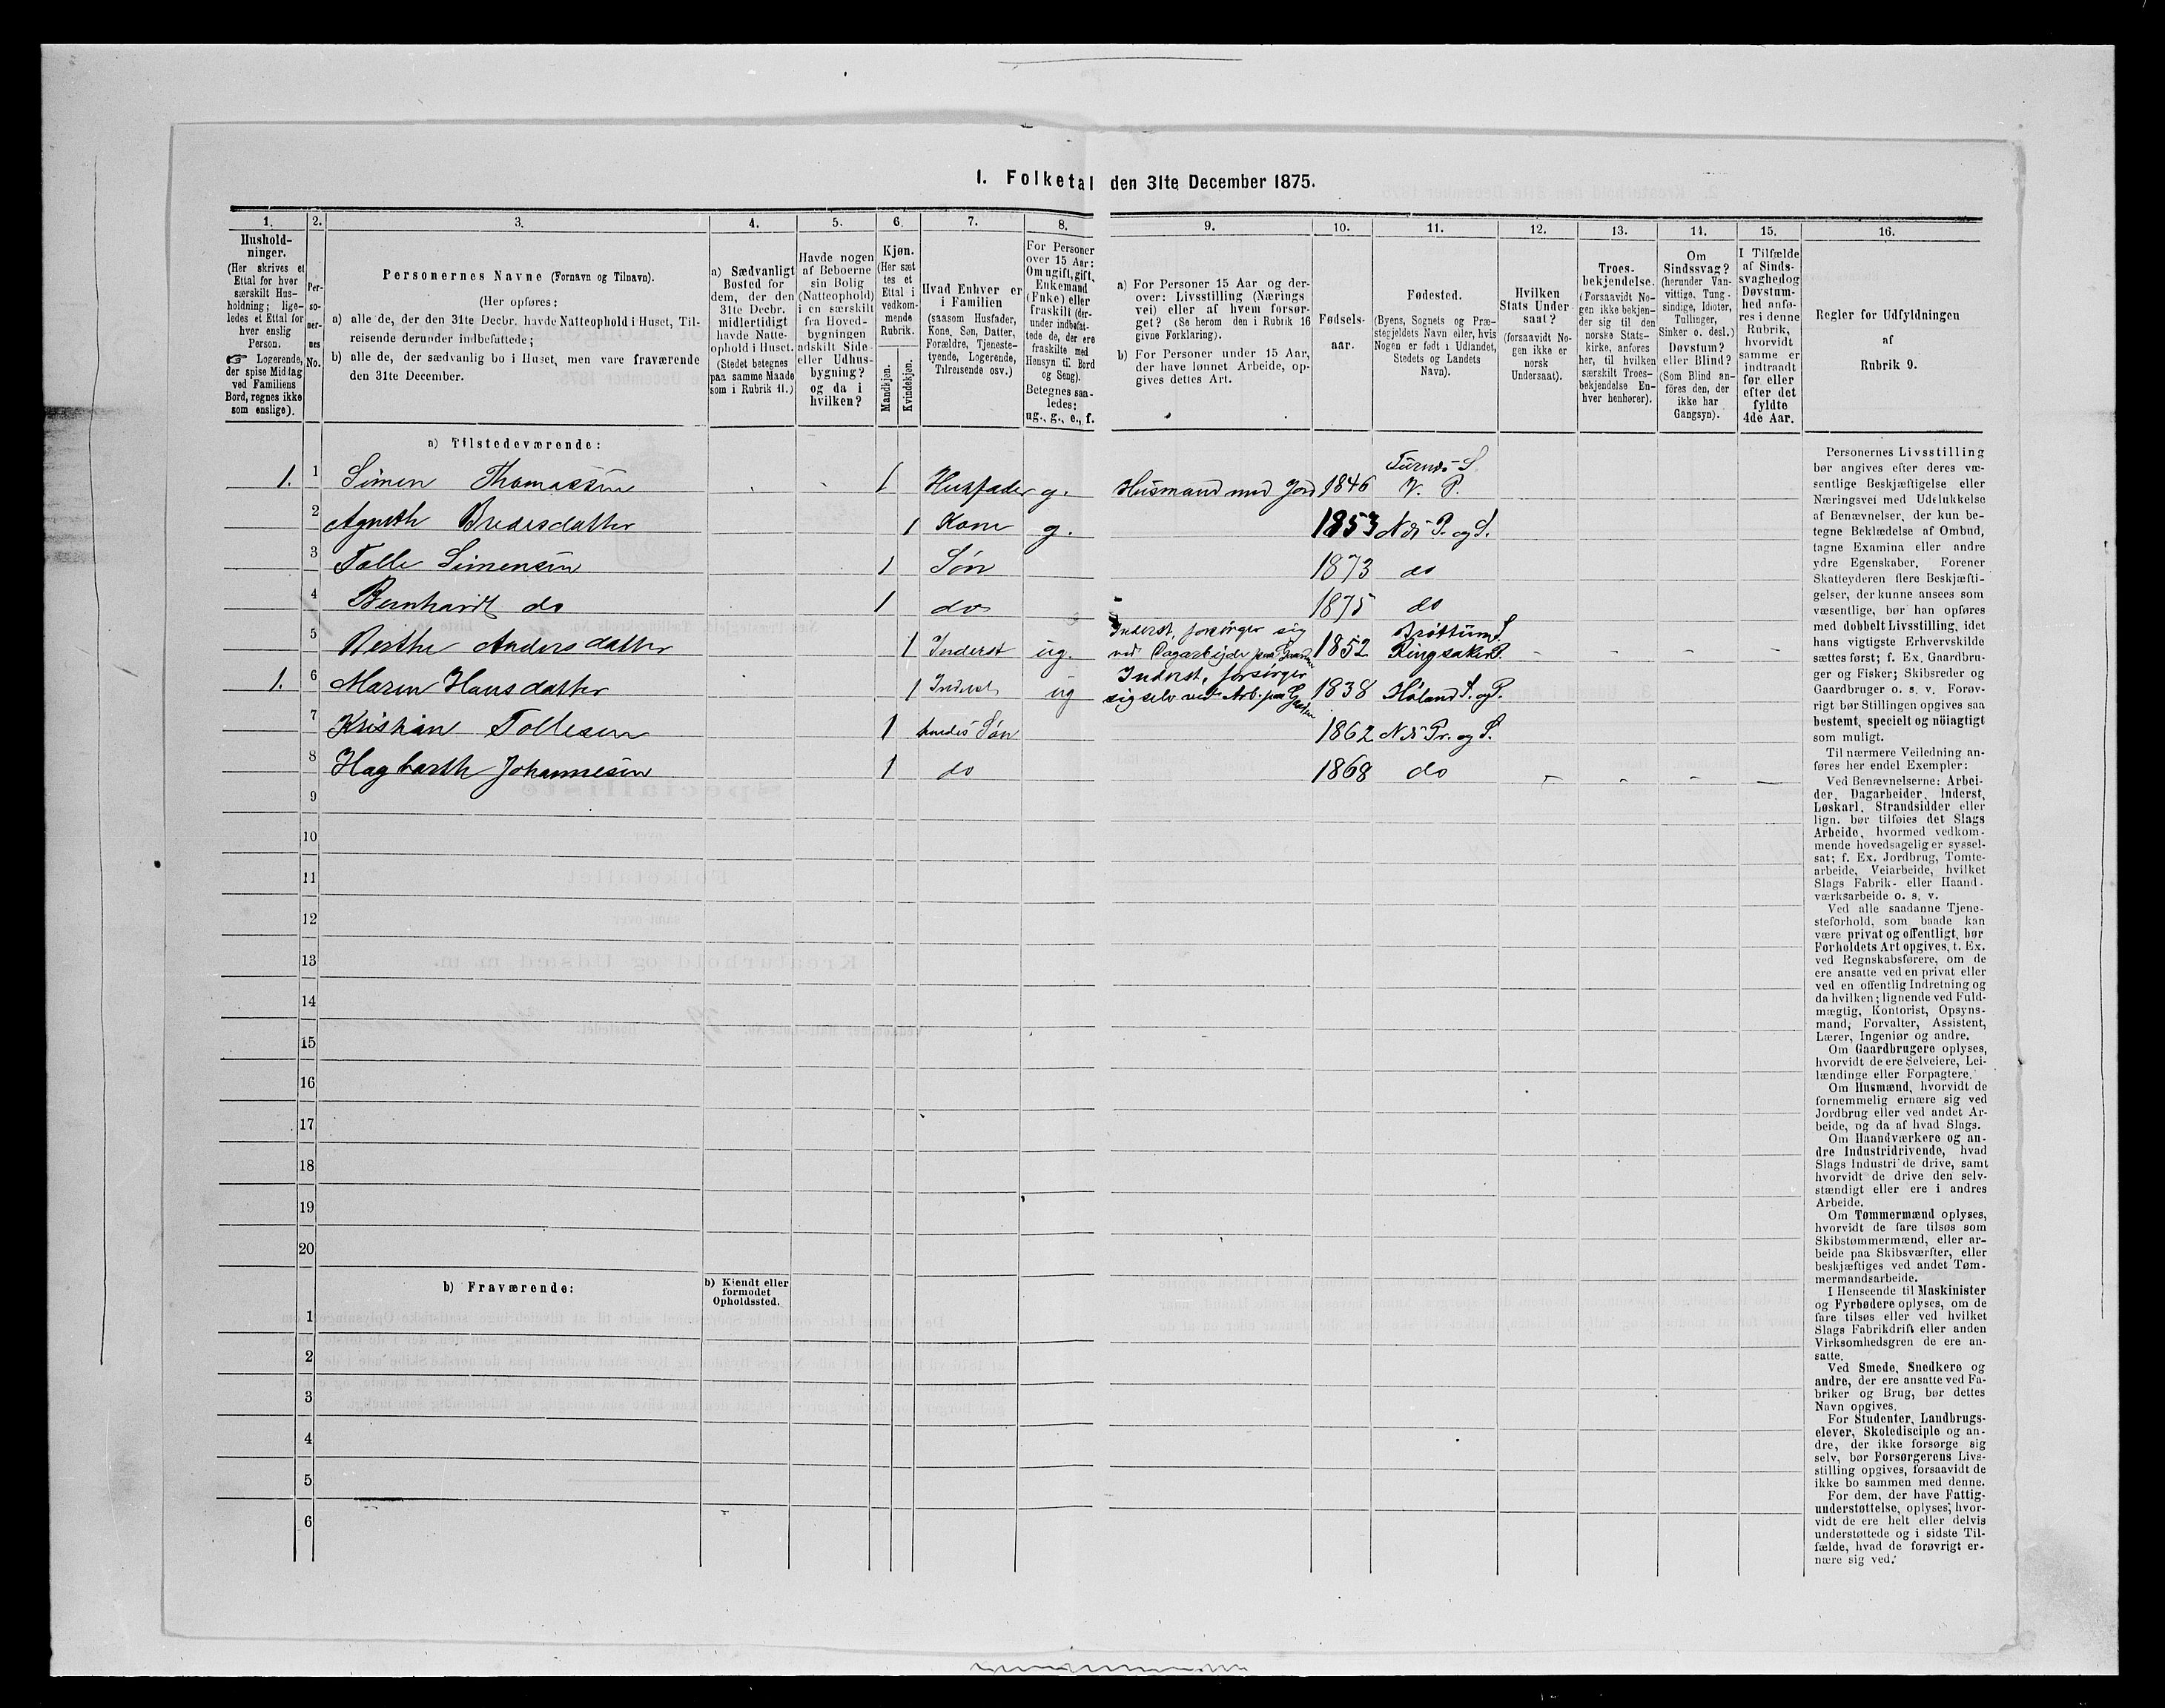 1. Folketal den 31te December 1875.
1. 2. 3. 4. 5. 6. 7. 8. 9. 10. 11. 12. 13. 14. 15. 16.
Hushold-
ninger.
(Her skrives et
Ettal for hver
særskilt Hus-
holdning; lige-
ledes et Ettal for
hver enslig
Person.
☞ Logerende,
der spise Middag
ved Familiens
Bord, regnes ikke
som enslige).
Per-
so-
ner-
nes
No.
Personernes Navne (Fornavn og Tilnavn).
(Her opføres:
a) alle de, der den 31te Decbr. havde Natteophold i Huset, Til-
reisende derunder indbefattede;
b) alle de, der sædvanlig bo i Huset, men vare fraværende
den 31te December.
a) Sædvanligt
Bosted for
dem, der den
31te Decbr.
midlertidigt
havde Natte-
ophold i Huset.
(Stedet betegnes
paa samme Maade
som i Rubrik 11.)
Havde nogen
af Beboerne
sin Bolig
(Natteophold)
i en særskilt
fra Hoved-
bygningen
adskilt Side-
eller Udhus-
bygning?
og da i
hvilken?
Kjøn.
(Her sæt
tes et
Ettal i
vedkom-
mende
Rubrik.
Mandkjøn.
Kvindekjøn.
Hvad Enhver er
i Familien
(saasom Husfader,
Kone, Søn, Datter,
Forældre, Tjeneste-
tyende, Logerende,
Tilreisende osv.)
For Personer
over 15 Aar:
Om ugift, gift,
Enkemand
(Enke) eller
fraskilt (der-
under indbefat-
tede de, der ere
fraskilte med
Hensyn til Bord
og Seng).
Betegnes saa-
ledes:
ug., g., e., f.
a) For Personer 15 Aar og der-
over: Livsstilling (Nærings
vei) eller af hvem forsør-
get? (Se herom den i Rubrik 16
givne Forklaring).
b) For Personer under 15 Aar,
der have lønnet Arbeide, op-
gives dettes Art.
Fødsels-
aar.
Fødested.
(Byens, Sognets og Præ-
stegjeldets Navn eller, hvis
Nogen er født i Udlandet,
Stedets og Landets
Navn).
Hvilken
Stats Under-
saat?
(forsaavidt No-
gen ikke er
norsk
Undersaat).
Troes-
bekjendelse.
(Forsaavidt No-
gen ikke bekjen-
der sig til den
norske Stats-
kirke, anføres
her, til hvilken
særskilt Troes-
bekjendelse En-
hver henhører).
Om
Sindssvag?
(herunder Van-
vittige, Tung-
sindige, Idioter,
Tullinger,
Sinker o. desl.)
Døvstum?
eller Blind?
(Som Blind an-
føres den, der
ikke har
Gangsyn).
I Tilfælde
af Sinds-
svaghed og
Døvstum-
hed anfø-
res i denne
Rubrik,
hvorvidt
samme er
indtraadt
før eller
efter det
fyldte
4de Aar.
Regler for Udfyldningen
af
Rubrik 9.
a) Tilstedeværende:
1. 1 Simen Thomassen 1 Husfader g. Husmand med Jord 1846 Furnæs S. V. P.
2 Agneth Bredesdatter 1 Kone g. 1853 Næs P. og S.
3 Tolle Simensen 1 Søn 1873 do
4 Bernhardt do 1 do 1875 do
5 Berthe Andersdatter 1 Inderst ug. Inderst, forsørger sig
ved Dagarbejde paa Gaarden 1852 Brøttum S. Ringsaker P.
1. 6 Maren Hansdatter 1 Inderst ug Inderst, forsørger
sig selv ved Arb. paa Gaarden 1838 Høland S. og P.
7 Kristian Tollesen 1 hendes Søn 1862 Næs Pr. og S.
8 Hagbarth Johannesen 1 do 1868 do
9
10
11
12
13
14
15
16
17
18
19
20
b) Fraværende:
b) Kjendt eller
formodet
Opholdssted.
1
2
3
4
5
6
Personernes Livsstilling
bør angives efter deres væ-
sentlige Beskjæftigelse eller
Næringsvei med Udelukkelse
af Benævnelser, der kun be-
tegne Beklædelse af Ombud,
tagne Examina eller andre
ydre Egenskaber. Forener
Skatteyderen flere Beskjæfti-
gelser, der kunne ansees som
væsentlige, bør han opføres
med dobbelt Livsstilling, idet
hans vigtigste Erhvervskilde
sættes først; f. Ex. Gaardbru-
ger og Fisker; Skibsreder og
Gaardbruger o. s. v. Forøv-
rigt bør Stillingen opgives saa
bestemt, specielt og nøiagtigt
som muligt.
Til nærmere Veiledning an-
føres her endel Exempler:
Ved Benævnelserne: Arbei-
der, Dagarbeider, Inderst,
Løskarl, Strandsidder eller
lign. bør tilføies det Slags
Arbeide, hvormed vedkom-
mende hovedsagelig er syssel-
sat; f. Ex. Jordbrug, Tomte-
arbeide, Veiarbeide, hvilket
Slags Fabrik- eller Haand-
værksarbeide o. s. v.
Ved alle saadanne Tjene-
steforhold, som baade kan
være privat og offentligt, bør
Forholdets Art opgives, t. Ex.
ved Regnskabsførere, om de
ere ansatte ved en privat eller
ved en offentlig Indretning og
da hvilken; lignende ved Fuld-
mægtig, Kontorist, Opsyns-
mand, Forvalter, Assistent,
Lærer, Ingeniør og andre.
Om Gaardbrugere oplyses,
hvorvidt de ere Selveiere, Lei-
lændinge eller Forpagtere.
Om Husmænd, hvorvidt de
fornemmelig ernære sig ved
Jordbrug eller ved andet Ar-
beide, og da af hvad Slags.
Om Haandværkere og an-
dre Industridrivende, hvad
Slags Industri de drive, samt
hvorvidt de drive den selv-
stændigt eller ere i andres
Arbeide.
Om Tømmermænd oplyses,
hvorvidt de fare tilsøs som
Skibstømmermænd, eller ar-
beide paa Skibsværfter, eller
beskjæftiges ved andet Tøm-
mermandsarbeide.
I Henseende til Maskinister
og Fyrbødere oplyses, om de
fare tilsøs eller ved hvilket
Slags Fabrikdrift eller anden
Virksomhedsgren de ere an-
satte.
Ved Smede, Snedkere og
andre, der ere ansatte ved Fa-
briker og Brug, bør dettes
Navn opgives.
For Studenter, Landbrugs-
elever, Skoledisciple og an-
dre, der ikke forsørge sig
selv, bør Forsørgerens Livs-
stilling opgives, forsaavidt de
ikke bo sammen med denne.
For dem, der have Fattig-
understøttelse, oplyses, hvor-
vidt de ere helt eller delvis
understøttede og i sidste Til-
fælde, hvad de forøvrigt er-
nære sig ved.